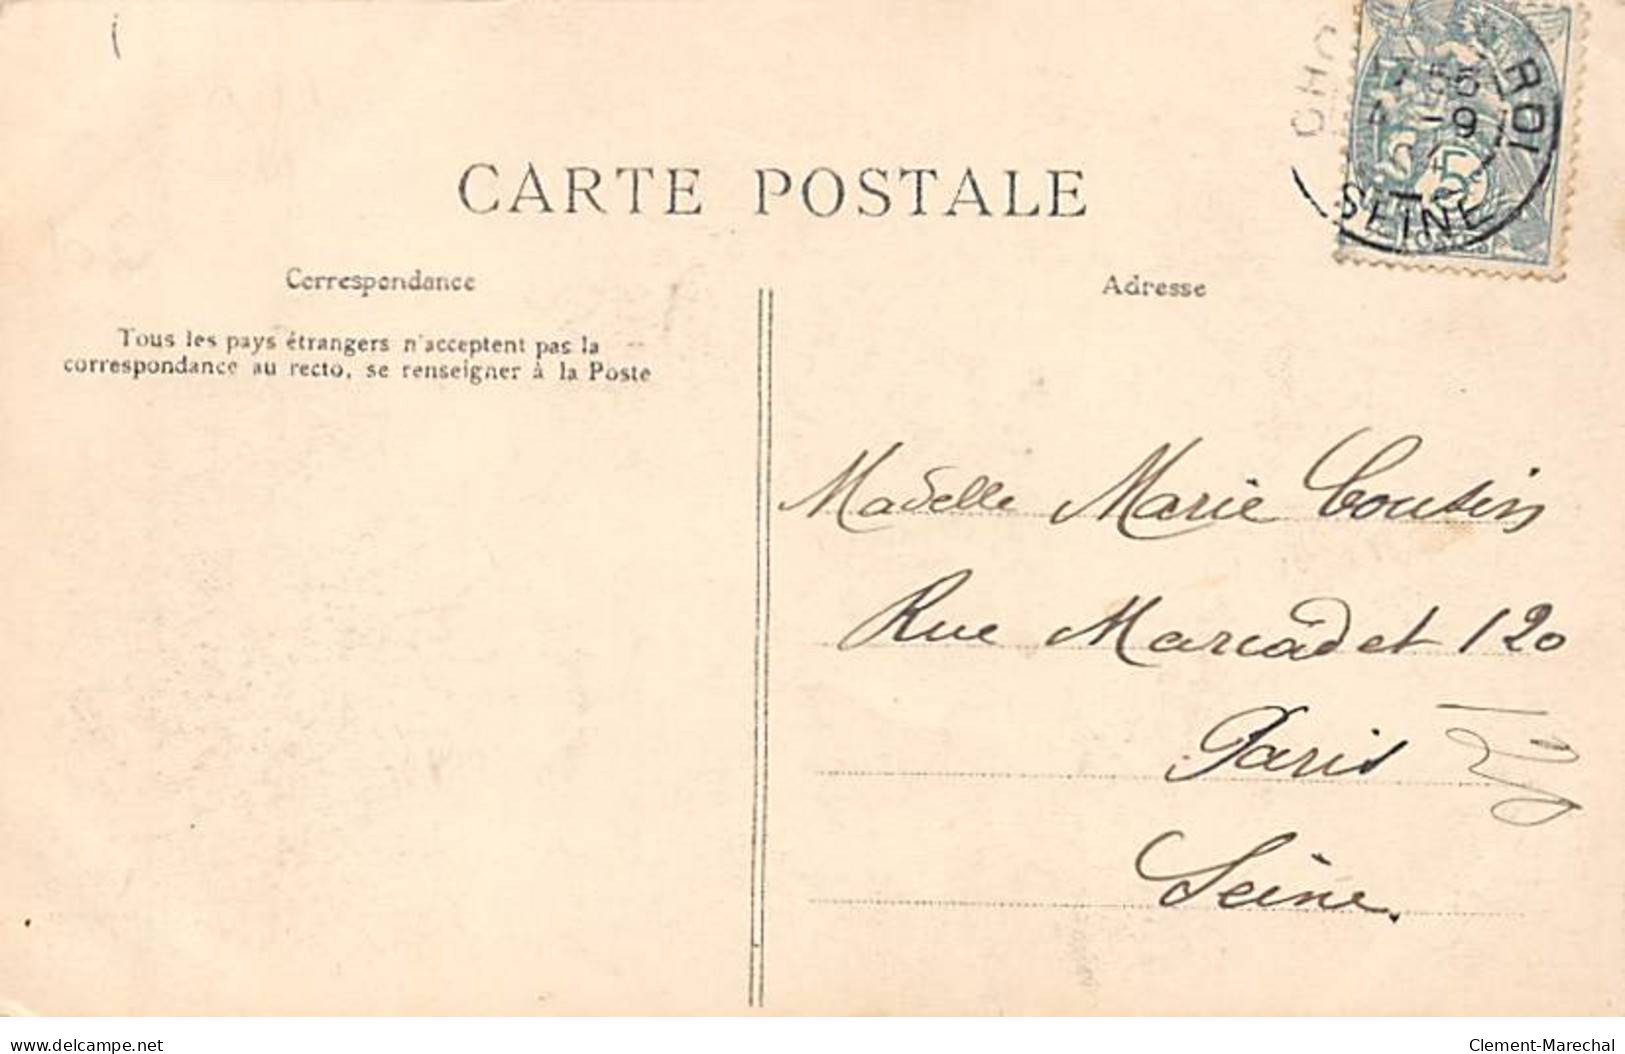 CARTE POSTALE
Correspondance
Adresse
Tous les pays étrangers n'acceptent pas la
correspondance au recto, se renseigner à la Poste
CHO ROI
SEINE
5
Madelle Marie Cousin
Rue Marcadet 120
Paris
Seine.
www.delcampe.net
Clement-Marechal